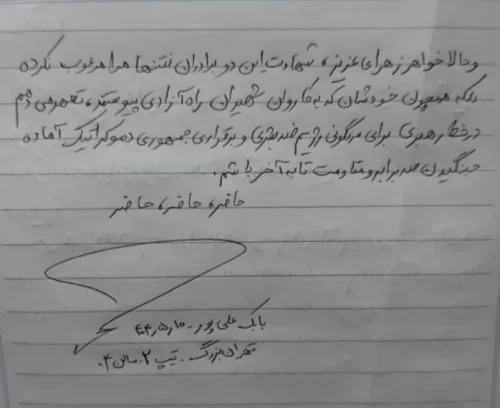 و حالا خواهر زهرای عزیز، شهادت این دو برادران نه‌تنها مرا مرعوب نکرده
بلکه همچون خودشان که به کاروان شهیران راه آزادی پیوستند، تعهد می دهم
در خط رهبری برای سرنگونی رژیم ضد بشری و برقراری جمهوری دموکراتیک آماده
جنگیدن صد برابر و مقاومت تا به آخر باشم.
حاضر، حاضر، حاضر
بابک علی پور - ۱۰ر۵ر۴۰۴
تهران بزرگ. تیپ ۲. سالن ۴.